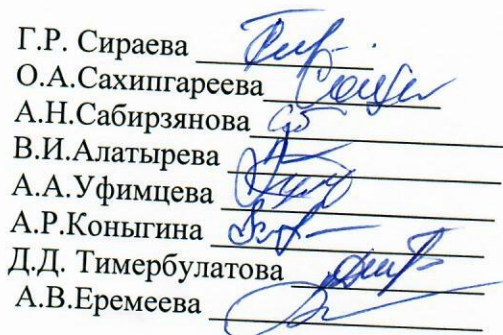 Г.Р. Сираева
О.А.Сахипгареева
А.Н.Сабирзянова
В.И.Алатырева
А.А.Уфимцева
А.Р.Коныгина
Д.Д. Тимербулатова
А.В.Еремеева